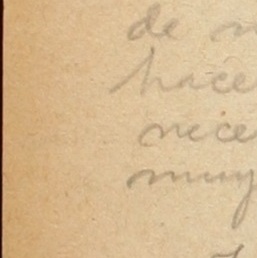 de n
hace
nece
muy